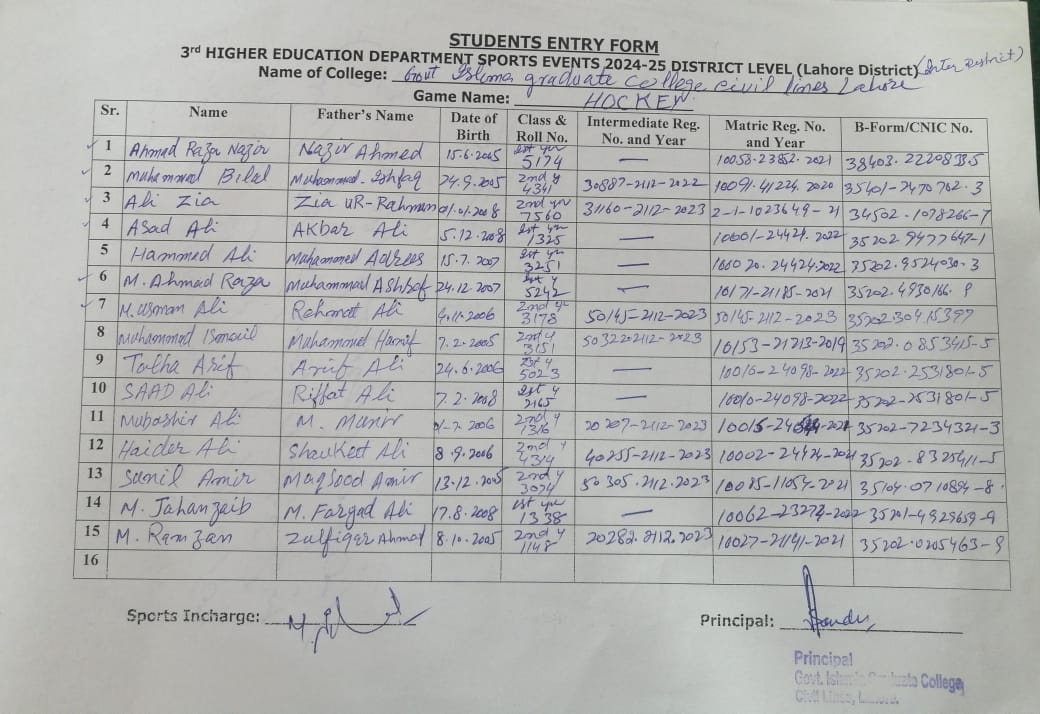 STUDENTS ENTRY FORM
3rd HIGHER EDUCATION DEPARTMENT SPORTS EVENTS 2024-25 DISTRICT LEVEL (Lahore District) (Inter District)
Name of College: Govt Islamia graduate College civil lines Lahore
Game Name: HOCKEY
Sr. Name Father's Name Date of Birth Class & Roll No. Intermediate Reg. No. and Year Matric Reg. No. and Year B-Form/CNIC No.
1 Ahmad Raza Nazir Nazir Ahmed 15.6.2005 1st yr 5174 — 10053-23852-2021 38403.2220893.5
2 Muhammad Bilal Muhammad Ishfaq 24.9.2005 2nd y 4341 30887-2112-2022 10091-41224.2020 35401-2470762.3
3 Ali Zia Zia UR-Rahman 01.01.2008 2nd yr 7560 31160-2112-2023 2-1-1023649-21 34502.1078266-7
4 Asad Ali AKbar Ali 5.12.2008 1st yr 1325 — 10601-24424.2022 35202.9477647-1
5 Hammed Ali Muhammed Adrees 15.7.2007 1st yr 3251 — 10020.24424.2022 35202.9524030.3
6 M. Ahmad Raza Muhammad Ashraf 24.12.2007 1st y 5242 — 10171-21185-2021 35202.4930166.9
7 M.Usman Ali Rehmat Ali 4.11.2006 2nd yr 3178 50145-2112-2023 50145-2112-2023 35202.30415397
8 Muhammad Ismail Muhammad Hanif 7.2.2005 2nd y 3151 50322-2112-2023 10153-21213-2019 35202.0853415-5
9 Talha Arif Arif Ali 24.6.2006 1st y 5023 — 10016-24098-2022 35202.2531801-5
10 SAAD Ali Riffat Ali 7.2.2008 1st y 2165 — 10010-24098-2022 35202-2531801-5
11 Mubashir Ali M. Munir 2006 2nd y 1316 20207-2112-2023 35202-7234321-3
12 Haider Ali Shaukeet Ali 8.9.2006 2nd y 4314 40255-2112-2023 10002-24424-2021 35202-8325411-5
13 Sunil Amir Maqsood Amir 13.12.2005 2nd y 3074 50305.2112.2023 10085-11054-2021 35104.0710894-8
14 M. Jahanzaib M. Farzad Ali 17.8.2008 1st yr 1338 — 10062-23274-2022 35201-4929659-9
15 M. Ramzan Zulfiqar Ahmad 8.10.2005 2nd y 1148 20282.2112.2023 10027-21141-2021 35202.0205463-9
16
Sports Incharge:
Principal:
Principal
Govt. Islamia Graduate College
Civil Lines, Lahore.